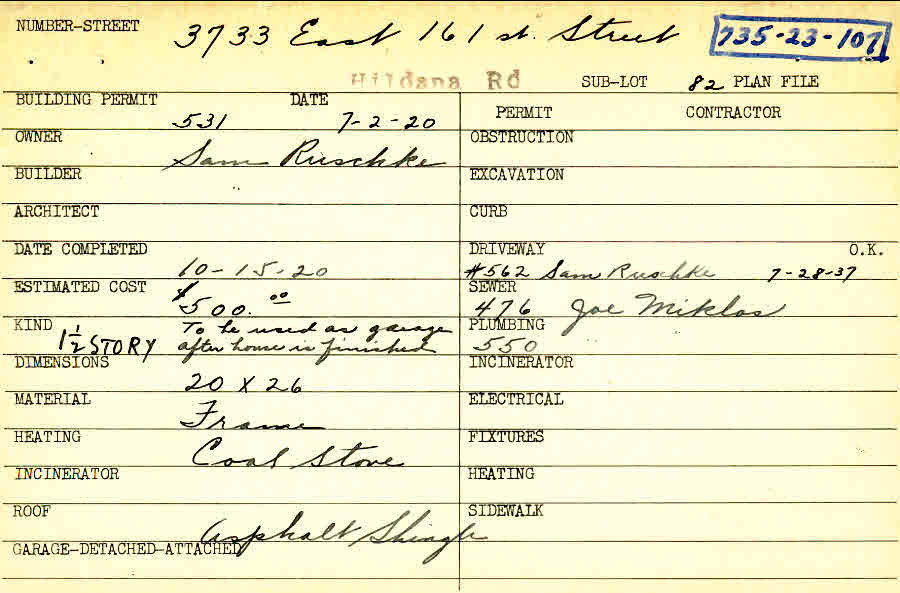 NUMBER-STREET 3733 East 161 st. Street 735-23-107
Hildana Rd SUB-LOT 82 PLAN FILE
BUILDING PERMIT 531 DATE 7-2-20
OWNER Sam Ruschke
BUILDER
ARCHITECT
DATE COMPLETED 10-15-20
ESTIMATED COST $500.00
KIND 1 1/2 STORY To be used as garage
after house is finished
DIMENSIONS 20 X 26
MATERIAL Frame
HEATING Coal Stove
INCINERATOR
ROOF Asphalt Shingle
GARAGE-DETACHED-ATTACHED
PERMIT CONTRACTOR
OBSTRUCTION
EXCAVATION
CURB
DRIVEWAY O.K.
#562 Sam Ruschke 7-28-37
SEWER
476 Joe Miklos
PLUMBING
550
INCINERATOR
ELECTRICAL
FIXTURES
HEATING
SIDEWALK